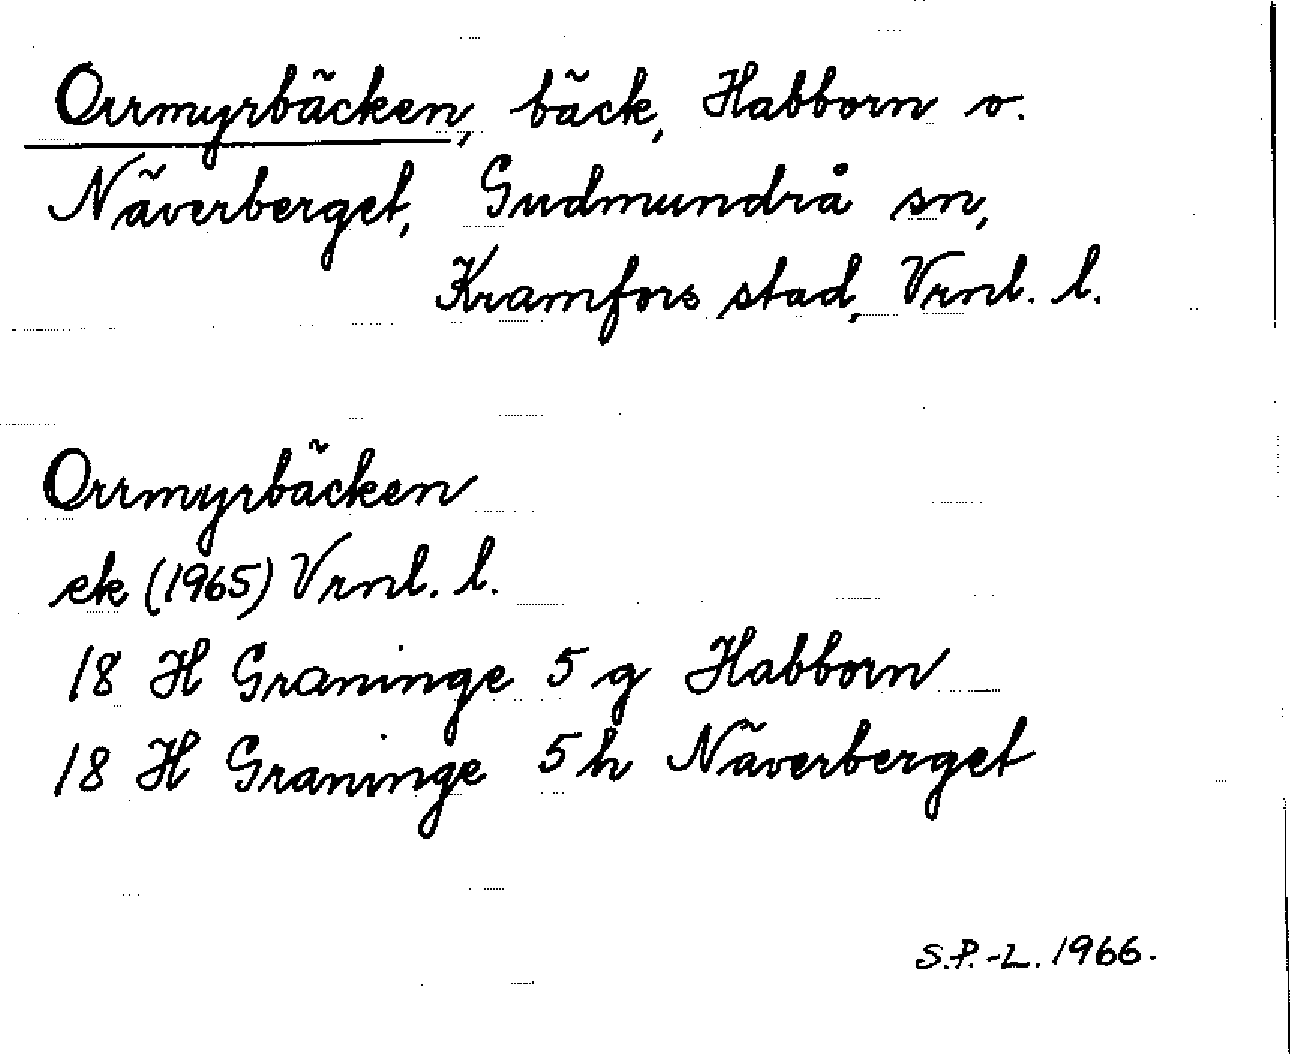 Orrmyrbäcken, bäck, Habborn o.
Näverberget, Gudmundrå sn,
Kramfors stad, Vrnl. l.
Orrmyrbäcken
ek (1965) Vrnl. l.
18 H Graninge 5 g Habborn
18 H Graninge 5 h Näverberget
S.P.-L. 1966.